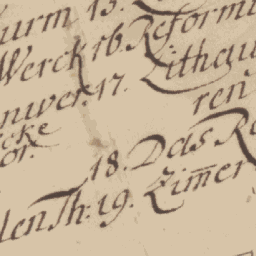 turm 15.
Werck 16. Reformi
nwer. 17. Lithau
ren
cke
or. 18. Das Re
len Th: 19. Zim̄er